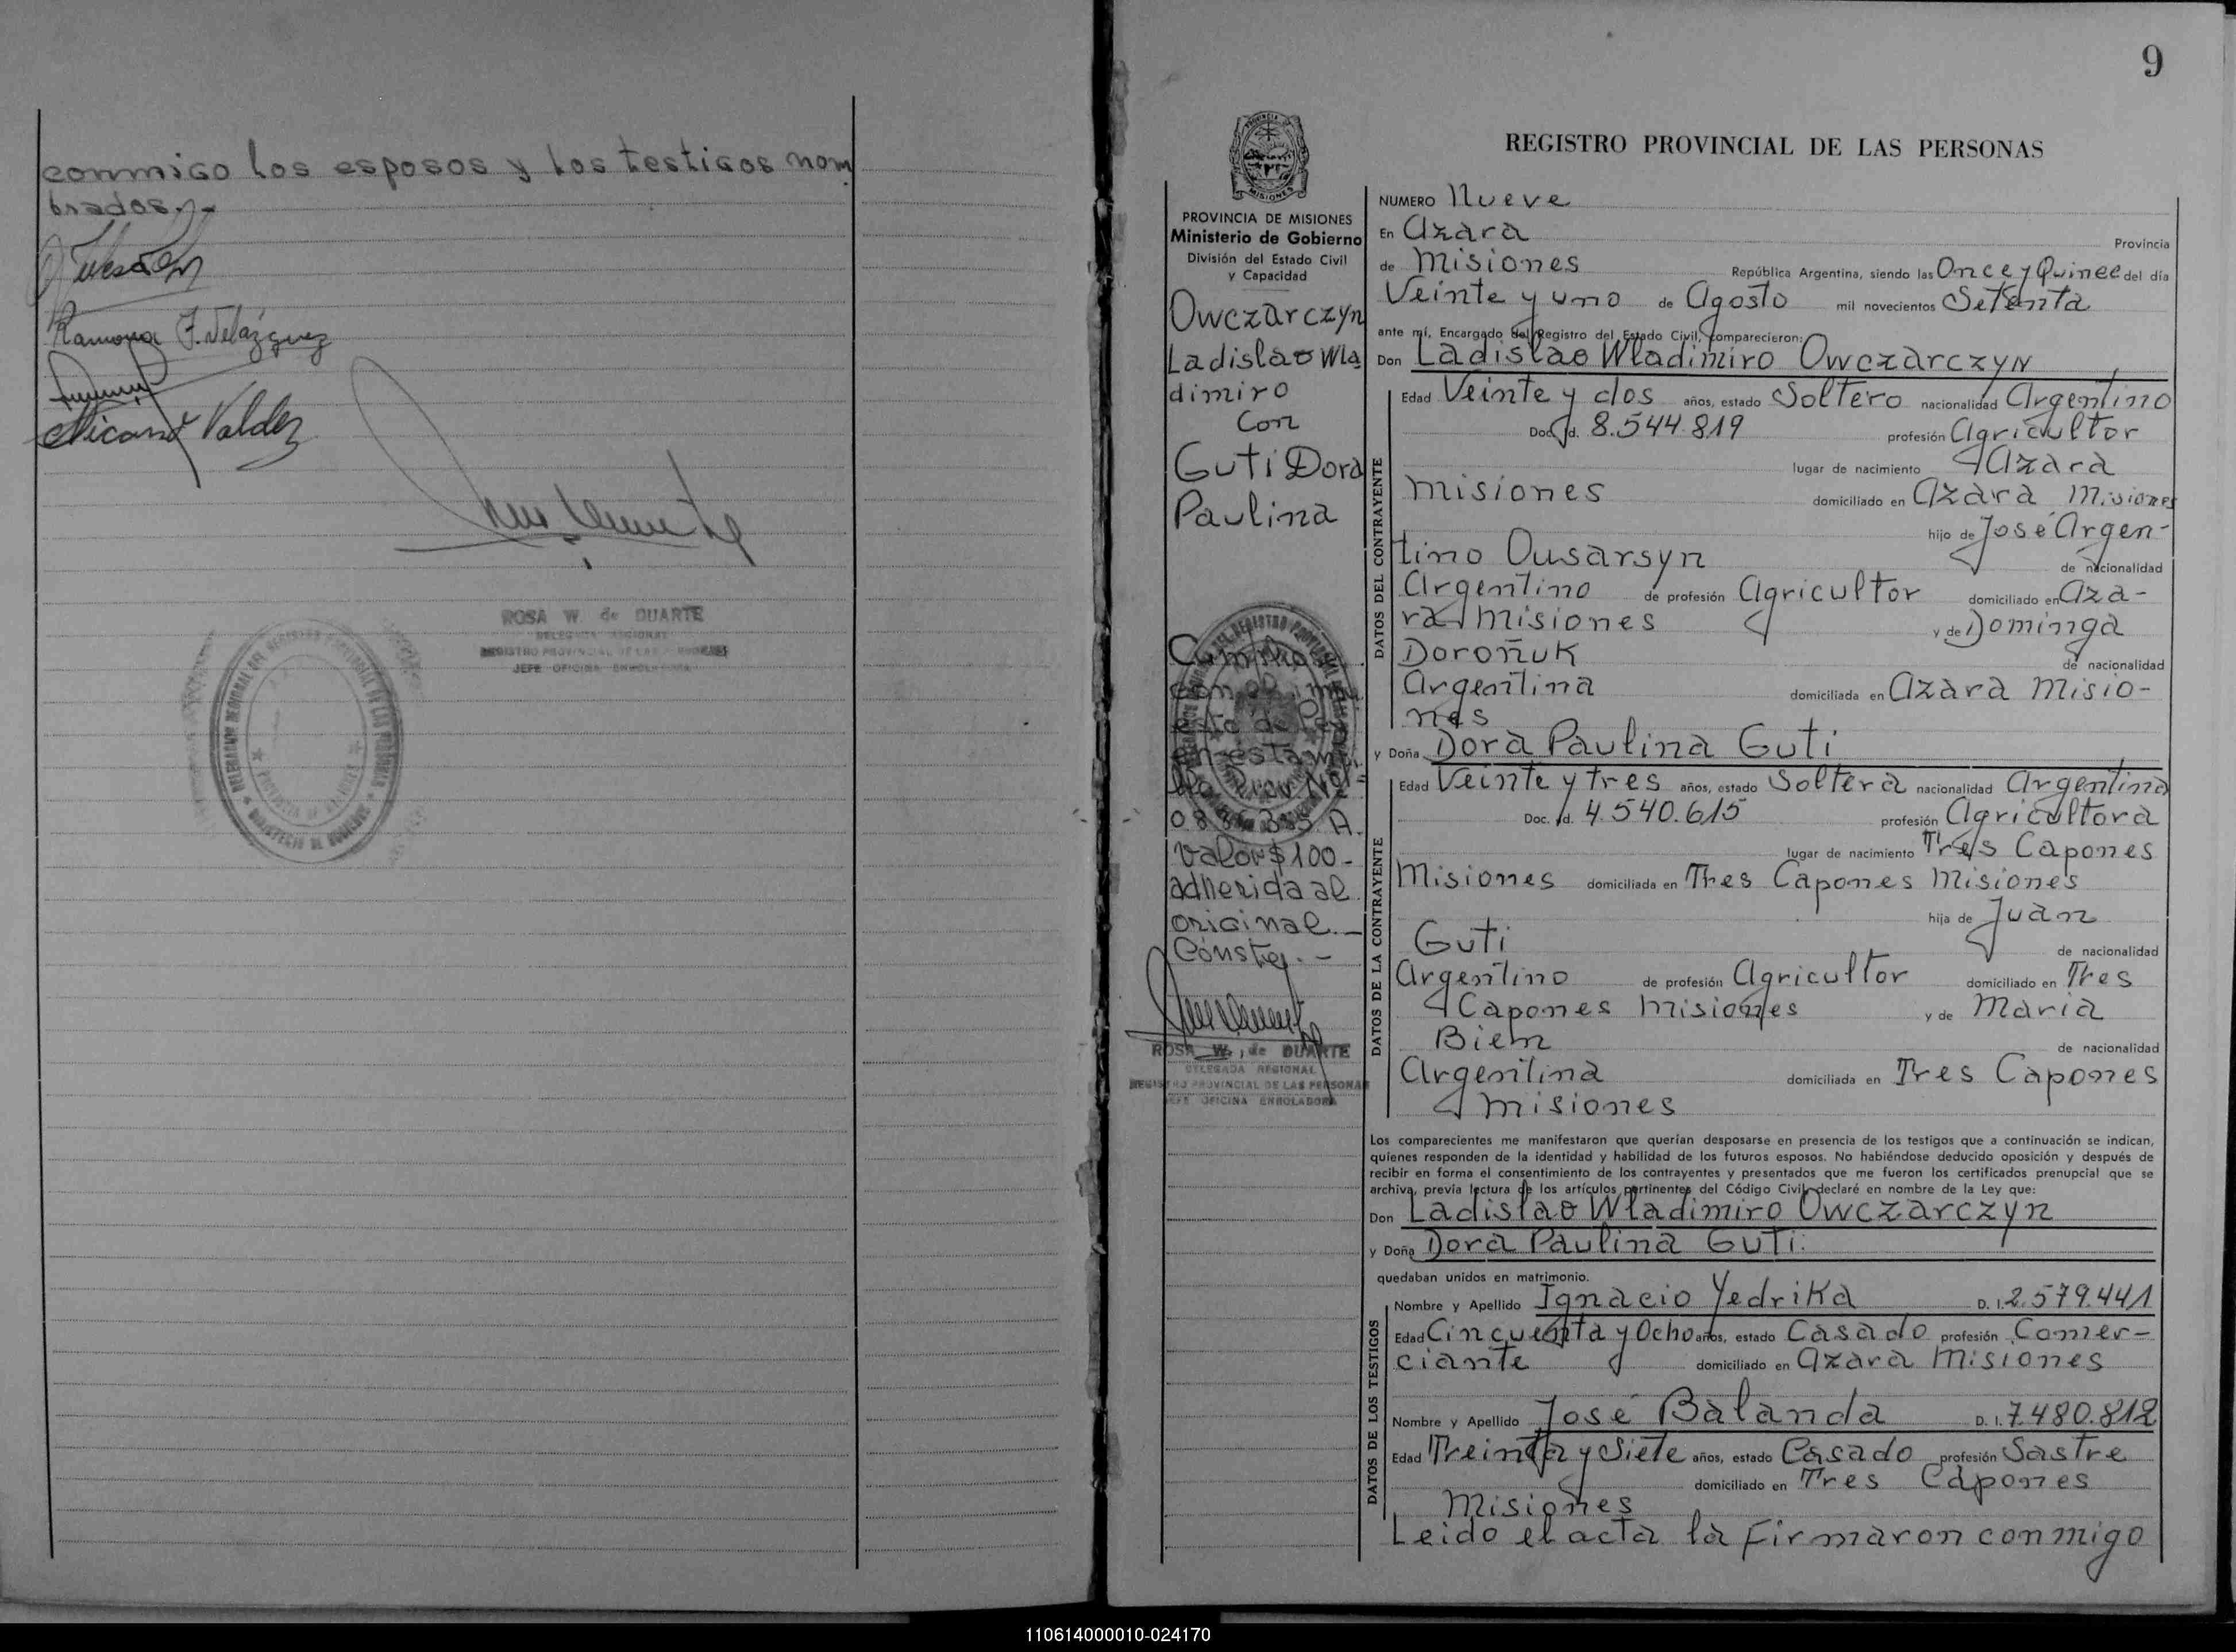 conmigo los esposos y los testigos nom
brados.-
Ramona F. Velázquez
Nicanor Valdez
ROSA W. de DUARTE
DELEGADA REGIONAL
REGISTRO PROVINCIAL DE LAS PERSONAS
JEFE OFICINA ENROLADORA
DELEGACION REGIONAL DEL REGISTRO PROVINCIAL DE LAS PERSONAS
PROVINCIA DE MISIONES
MINISTERIO DE GOBIERNO
9
PROVINCIA DE MISIONES
Ministerio de Gobierno
División del Estado Civil
y Capacidad
Owczarczyn
Ladislao Wla
dimiro
Con
Guti Dora
Paulina
Cumplido
con el impu
esto de Ley
en estampi
lla
A.
Valor $100-
adherida al
original.-
Conste.-
ROSA W. de DUARTE
DELEGADA REGIONAL
REGISTRO PROVINCIAL DE LAS PERSONAS
JEFE OFICINA ENROLADORA
REGISTRO PROVINCIAL DE LAS PERSONAS
NUMERO Nueve
En Azara Provincia
de Misiones República Argentina, siendo las Once y Quince del día
Veinte y uno de Agosto mil novecientos Setenta
ante mí, Encargado del Registro del Estado Civil, comparecieron:
Don Ladislao Wladimiro Owczarczyn
DATOS DEL CONTRAYENTE
Edad Veinte y dos años, estado Soltero nacionalidad Argentino
Doc. Id. 8.544.819 profesión Agricultor
lugar de nacimiento Azara
Misiones domiciliado en Azara Misiones
hijo de José Argen-
tino Ousarsyn de nacionalidad
Argentino de profesión Agricultor domiciliado en Aza-
ra Misiones y de Dominga
Doroñuk de nacionalidad
Argentina domiciliada en Azara Misio-
nes
y Doña Dora Paulina Guti
DATOS DE LA CONTRAYENTE
Edad Veinte y tres años, estado Soltera nacionalidad Argentina
Doc. Id. 4.540.615 profesión Agricultora
lugar de nacimiento Tres Capones
Misiones domiciliada en Tres Capones Misiones
hija de Juan
Guti de nacionalidad
Argentino de profesión Agricultor domiciliado en Tres
Capones Misiones y de Maria
Bien de nacionalidad
Argentina domiciliada en Tres Capones
Misiones
Los comparecientes me manifestaron que querían desposarse en presencia de los testigos que a continuación se indican,
quienes responden de la identidad y habilidad de los futuros esposos. No habiéndose deducido oposición y después de
recibir en forma el consentimiento de los contrayentes y presentados que me fueron los certificados prenupcial que se
archiva, previa lectura de los artículos pertinentes del Código Civil, declaré en nombre de la Ley que:
Don Ladislao Wladimiro Owczarczyn
y Doña Dora Paulina Guti.
quedaban unidos en matrimonio.
DATOS DE LOS TESTIGOS
Nombre y Apellido Ignacio Yedrika D. I. 2.579.441
Edad Cincuenta y Ocho años, estado Casado profesión Comer-
ciante domiciliado en Azara Misiones
Nombre y Apellido José Balanda D. I. 7.480.812
Edad Treinta y Siete años, estado Casado profesión Sastre
domiciliado en Tres Capones
Misiones
Leido el acta la firmaron conmigo
110614000010-024170